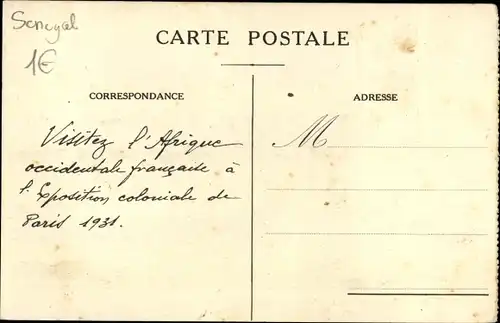 Senegal
1€
CARTE POSTALE
CORRESPONDANCE
ADRESSE
Visitez l'Afrique
occidentale française à
l'Exposition coloniale de
Paris 1931.
M